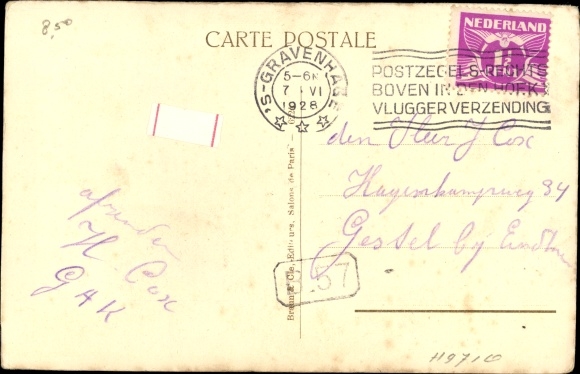 8,50
CARTE POSTALE
NEDERLAND
'S-GRAVENHAGE
5-6N
7 VI
1926
POSTZEGELS RECHTS
BOVEN IN DEN HOEK
VLUGGER VERZENDING
den Heer J Cox
Hagenkampweg 34
Gestel bij Eindhoven
afzender
H Cox
GAK
Braun & Cie, Editeurs, Salons de Paris
57
H9710